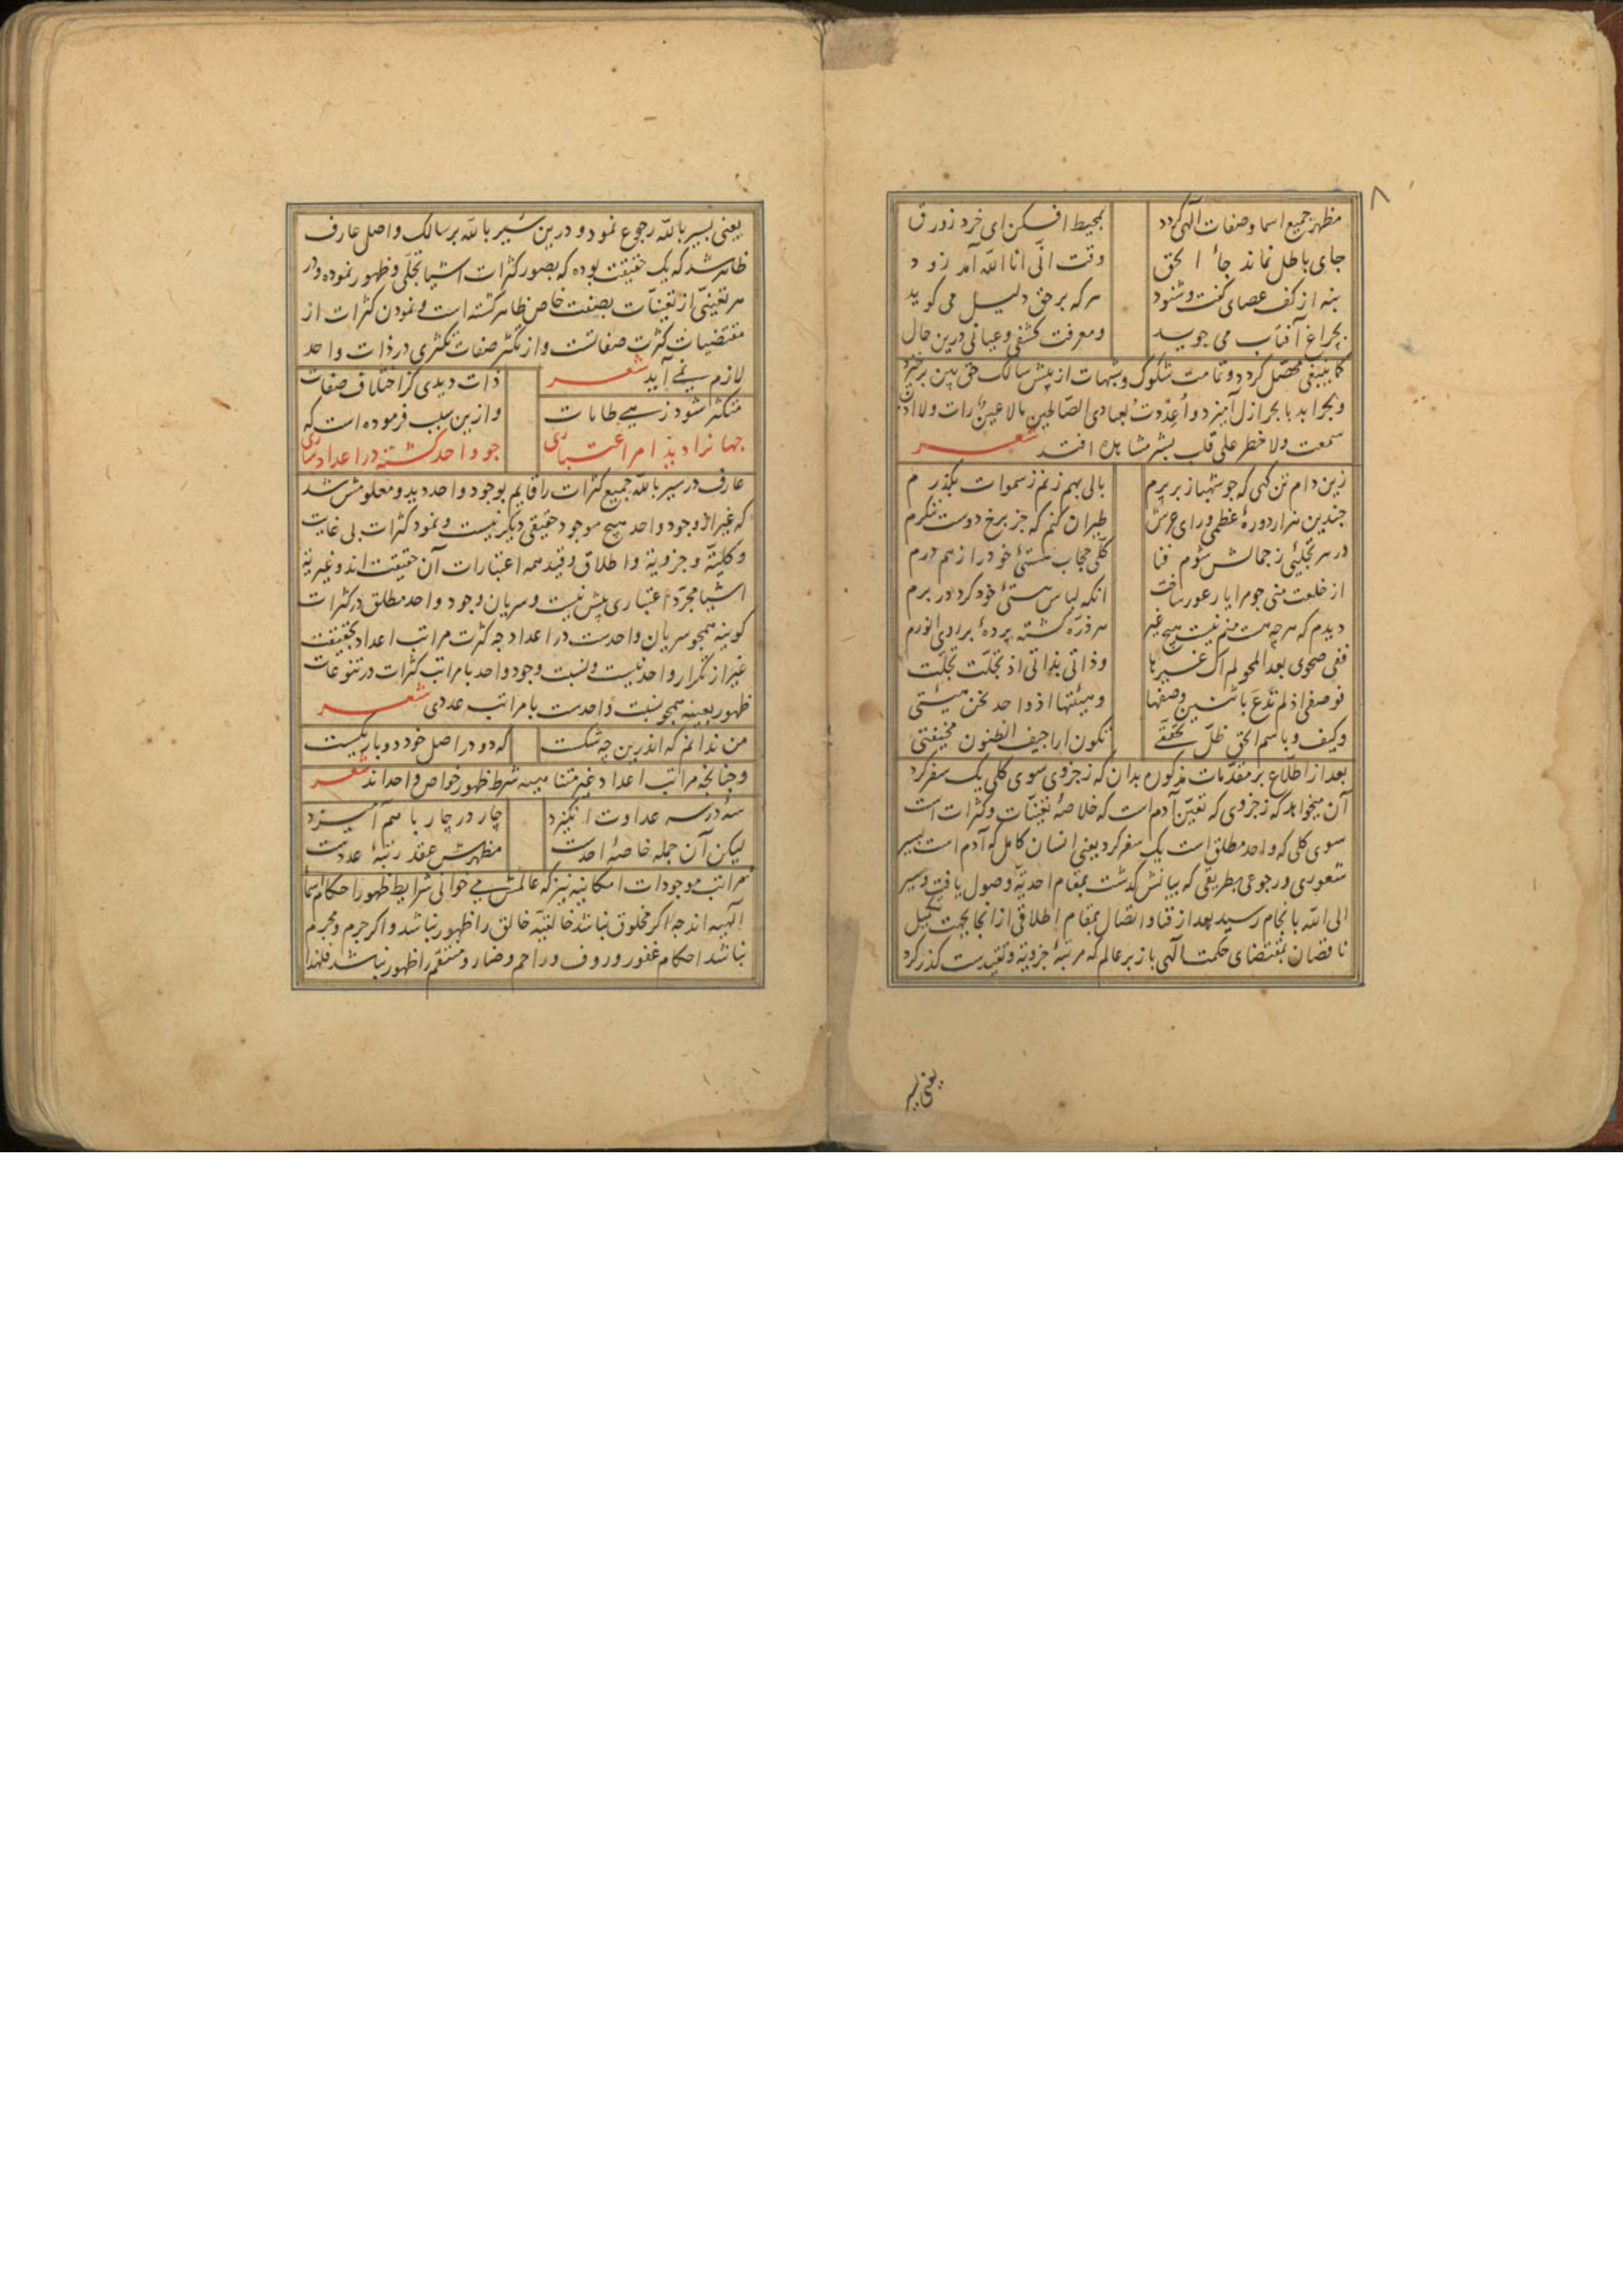 ۸
مظهر جمیع اسما و صفات آلهی کردد بمحیط افکن ای خرد زورق
جای باطل نماند جاء الحق وقت انی انا الله آمد زود
بنه از کف عصای کفت و شنود هر که بر حق دلیل می کوید
بچراغ آفتاب می جوید و معرفت کشفی و عیانی درین حال
کما ینبغی محصل کردد و تمامت شکوک و شبهات از پیش سالک حق بین برخیزد
و بحر ابد با بحر ازل آمیزد و اعددت لعبادی الصالحین ما لا عین رات ولا اذن
سمعت ولا خطر علی قلب بشر مشاهده افتد شعر
زین دام تن کهی که چو شهباز بر پرم بالی بهم زنم ز سموات بکذرم
چندین هزار دوره عظمی ورای عرش طیران کنم که جز برخ دوست ننکرم
در هر تجلیئی ز جمالش شوم فنا کلی حجاب هستئ خود را ز هم درم
از خلعت منی چو مرا یار عور ساخت انکه لباس هستئ خود کرد در برم
دیدم که هر چه هست منم نیست هیچ غیر هر ذره کشته پرده برای انورم
ففی صحوی بعد المحو لم اک غیرها و ذاتی بذاتی اذ تجلت تجلت
فوصفی اذ لم تدع باثنین وصفها و هیئتها اذ واحد نحن هیئتی
و کیف و باسم الحق ظل تحققی تکون اراجیف الظنون مخیفتی
بعد از اطلاع بر مقدمات مذکوره بدان که ز جزوی سوی کلی یک سفر کرد
آن میخواهد که ز جزوی که تعین آدم است که خلاصه تعینات و کثرات است
سوی کلی که واحد مطلق است یک سفر کرد یعنی انسان کامل که آدم است بسیر
شعوری و رجوعی بطریقی که بیانش کذشت بمقام احدیة وصول یافت و سیر
الی الله بانجام رسید بعد از فنا و اتصال بمقام اطلاقی از انجا بجهت تکمیل
ناقصان بمقتضای حکمت آلهی باز بر عالم که مرتبه جزویة و تقیدست کذر کرد
یعنی بسیر
یعنی بسیر بالله رجوع نمود و درین سیر بالله بر سالک واصل عارف
ظاهر شد که یک حقیقت بوده که بصور کثرات اشیا تجلی و ظهور نموده و در
هر تعینی از تعینات بصفت خاص ظاهر کشته است و نمودن کثرات از
مقتضیات کثرت صفاتست و از تکثر صفات تکثری در ذات واحد
لازم نمی آید شعر ذات دیدی کز اختلاف صفات
متکثر شود زهی طامات و ازین سبب فرموده است که
جهانرا دید امر اعتباری چو واحد کشته در اعداد ساری
عارف در سیر بالله جمیع کثرات را قایم بوجود واحد دید و معلومش شد
که غیر از وجود واحد هیچ موجود حقیقی دیکر نیست و نمود کثرات بی غایت
و کلیة و جزویة و اطلاق و قید همه اعتبارات آن حقیقت اند و غیریة
اشیا مجرد اعتباری بیش نیست و سریان وجود واحد مطلق در کثرات
کونیه همچو سریان واحدست در اعداد چه کثرت مراتب اعداد بحقیقت
غیر از تکرار واحد نیست و نسبت وجود واحد با مراتب کثرات در تنوعات
ظهور بعینه همچو نسبت واحدست با مراتب عددی شعر
من ندانم که اندرین چه شکست که دو در اصل خود دو بار یکیست
و چنانچه مراتب اعداد غیر متناهیه شرط ظهور خواص واحد اند شعر
سه در سه عداوت انکیزد چار در چار با هم آمیزد
لیکن آن جمله خاصه احدست مظهرش عقد رتبه عددست
مراتب موجودات امکانیه نیز که عالمش می خوانی شرایط ظهور احکام اسما
الهیه اند چه اکر مخلوق نباشد خالقیه خالق را ظهور نباشد و اکر جرم و مجرم
نباشد احکام غفور و روف و راحم و ضار و منتقم را ظهور نباشد فلهذا